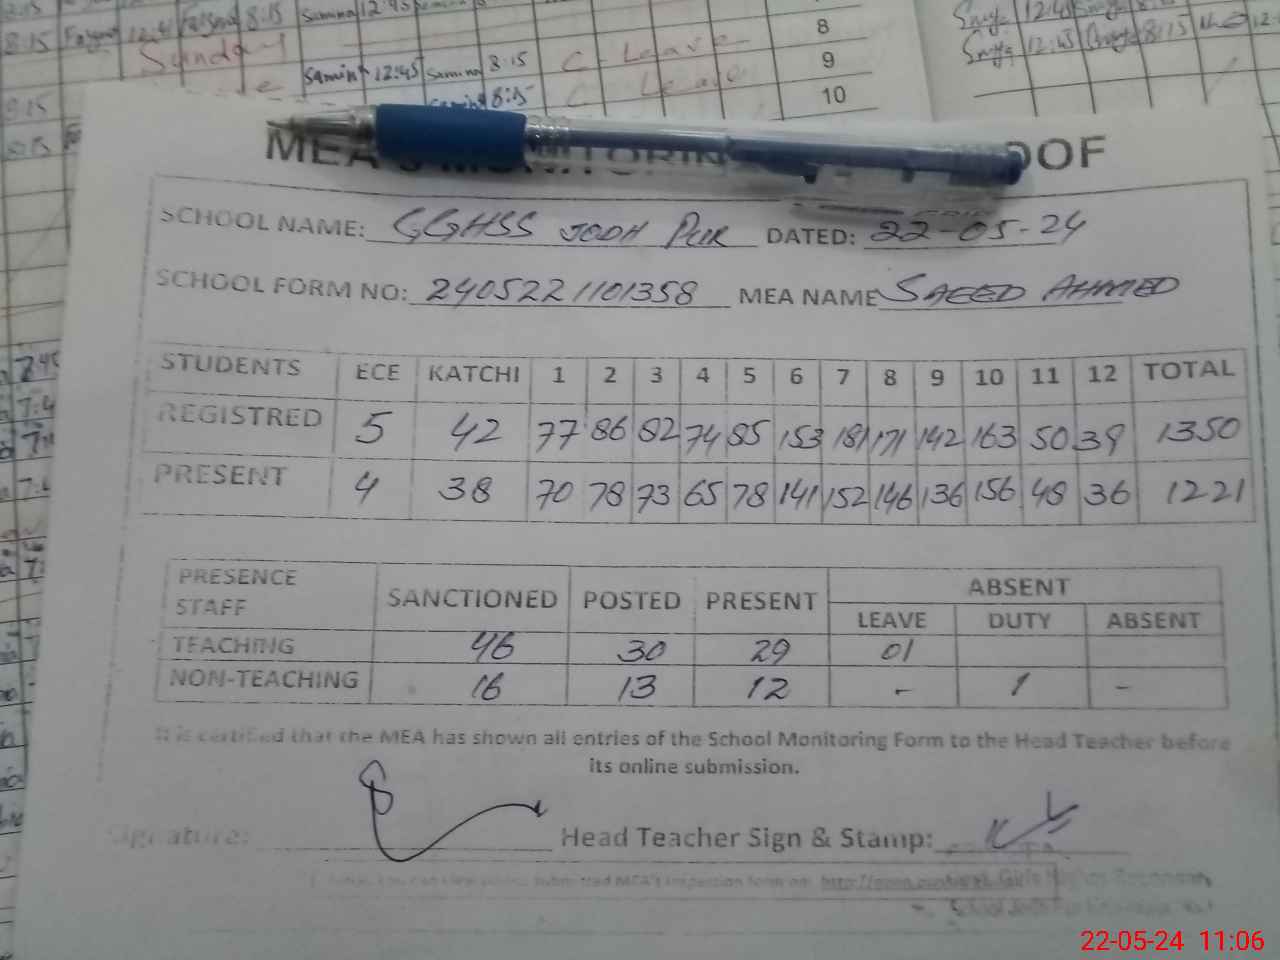 8:15 12:45 8:15 Samina 12:45
Sunday
Samina 12:45 Samina 8:15 C Leave
8:15 C Leave
8
9
10
12:45 8:15
12:45 8:15
OOF
SCHOOL NAME: GGHSS JODH PUR DATED: 22-05-24
SCHOOL FORM NO: 2405221101358 MEA NAME SAEED AHMED
STUDENTS ECE KATCHI 1 2 3 4 5 6 7 8 9 10 11 12 TOTAL
REGISTRED 5 42 77 86 82 74 85 153 181 171 142 163 50 39 1350
PRESENT 4 38 70 78 73 65 78 141 152 146 136 156 48 36 1221
PRESENCE STAFF SANCTIONED POSTED PRESENT ABSENT
LEAVE DUTY ABSENT
TEACHING 46 30 29 01
NON-TEACHING 16 13 12 - 1 -
It is certified that the MEA has shown all entries of the School Monitoring Form to the Head Teacher before
its online submission.
Signature: Head Teacher Sign & Stamp:
22-05-24 11:06